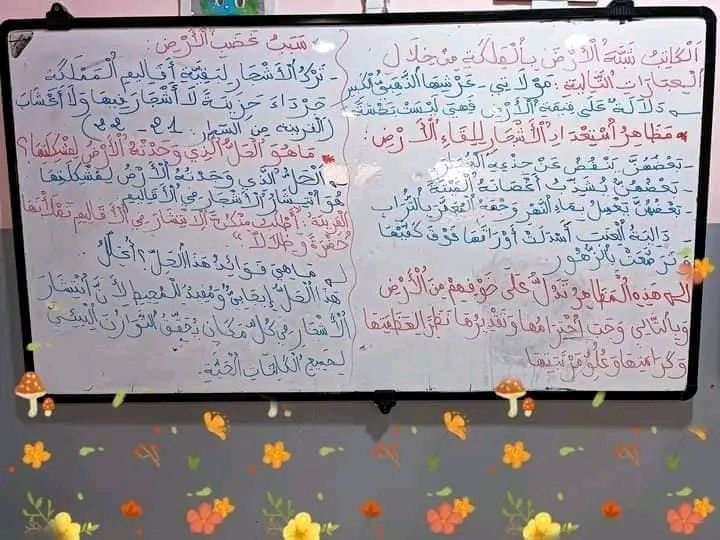 الْكَاتِبُ شَبَّهَ الْأَرْضَ بِالْمَلِكَةِ مِنْ خِلَالِ
الْعِبَارَاتِ التَّالِيَةِ: مَوْلَاتِي - عَرْشِهَا الذَّهَبِيِّ الْكَبِيرِ
دَلَالَةً عَلَى قِيمَةِ الْأَرْضِ فَهِيَ لَيْسَتْ بَسِيطَةً
مَظَاهِرُ اسْتِعْدَادِ الْأَشْجَارِ لِلِقَاءِ الْأَرْضِ:
- بَعْضُهُنَّ يَنْفُضُ عَنْ جِذْعِهِ الْغُبَارَ
- بَعْضُهُنَّ يُشَذِّبُ أَغْصَانَهُ الْمَيِّتَةَ
- بَعْضُهُنَّ يَغْسِلُ بِمَاءِ النَّهْرِ وَجْهَهُ الْمُعَفَّرَ بِالتُّرَابِ
- دَالِيَةُ الْعِنَبِ أَسْدَلَتْ أَوْرَاقَهَا فَوْقَ كَتِفَيْهَا
وَتَرَصَّعَتْ بِالزُّهُورِ
هَذِهِ الْمَظَاهِرُ تَدُلُّ عَلَى خَوْفِهِمْ مِنَ الْأَرْضِ
وَبِالتَّالِي وَجَبَ احْتِرَامُهَا وَتَقْدِيرُهَا نَظَرًا لِعَظَمَتِهَا
وَكَرَامَتِهَا وَعُلُوِّ مَرْتَبَتِهَا
سَبَبُ غَضَبِ الْأَرْضِ:
- تَرْكُ الْأَشْجَارِ لِبَقِيَّةِ أَقَالِيمِ الْمَمْلَكَةِ
جَرْدَاءَ حَزِينَةً لَا أَشْجَارَ فِيهَا وَلَا أَعْشَابَ
(الْقَرِينَةُ مِنَ السَّطْرِ: 21 - 22)
مَا هُوَ الْحَلُّ الَّذِي وَجَدَتْهُ الْأَرْضُ لِمُشْكِلَتِهَا؟
الْحَلُّ الَّذِي وَجَدَتْهُ الْأَرْضُ لِمُشْكِلَتِهَا
هُوَ انْتِشَارُ الْأَشْجَارِ فِي الْأَقَالِيمِ
الْقَرِينَةُ: أَطْلُبُ مِنْكُنَّ الِانْتِشَارَ فِي الْأَقَالِيمِ تَمْلَأْنَهَا
خُضْرَةً وَظِلَالًا"
مَا هِيَ فَوَائِدُ هَذَا الْحَلِّ؟ أُعَلِّلُ
هَذَا الْحَلُّ إِيجَابِيٌّ وَمُفِيدٌ لِلْمُحِيطِ لِأَنَّ انْتِشَارَ
الْأَشْجَارِ فِي كُلِّ مَكَانٍ يُحَقِّقُ التَّوَازُنَ الْبِيئِيَّ
لِجَمِيعِ الْكَائِنَاتِ الْحَيَّةِ.